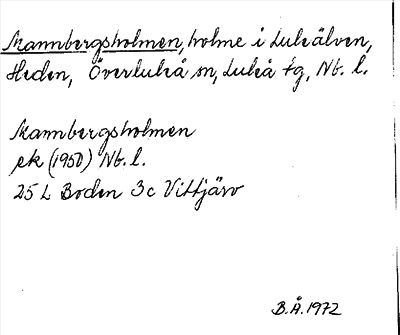 Mannbergsholmen, holme i Luleälven,
Heden, Överluleå sn, Luleå fg, Nb. l.
Mannbergsholmen
ek (1950) Nb. l.
25 L Boden 3c Vittjärv
B.Å. 1972